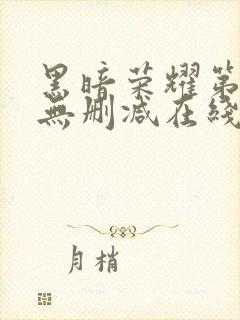 黑暗荣耀第
無删减在綫
月梢